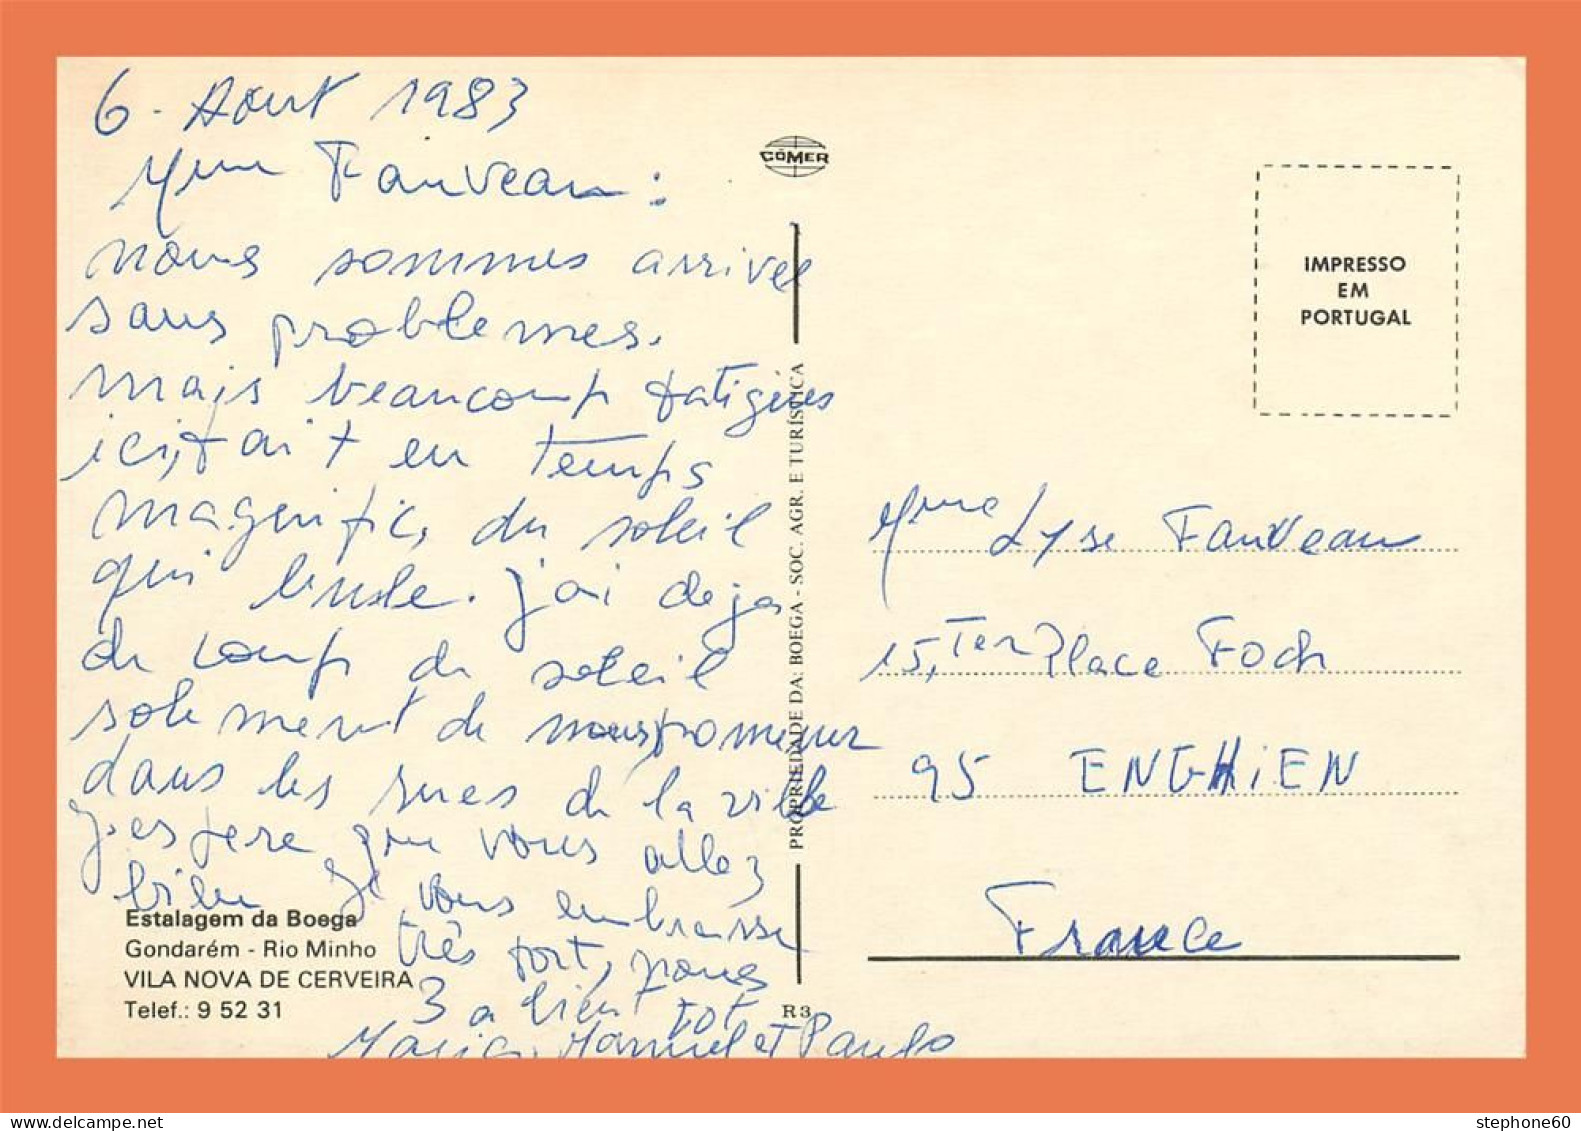 6. Aout 1983
Mme Fauveau :
nous sommes arrivee
sans problemes.
mais beaucoup fatigues
ici, fait en temps
magnific, du soleil
qui brule. j'ai deja
du coup de soleil
solement de nous promener
dans les rues de la ville
j'espere que vous allez
bien Je vous embrasse
très fort, nous
3 a bientot
Maria, Manuel et Paulo
Estalagem da Boega
Gondarém - Rio Minho
VILA NOVA DE CERVEIRA
Telef.: 9 52 31
CÓMER
PROPRIEDADE DA: BOEGA - SOC. AGR. E TURÍSTICA
R 3
IMPRESSO
EM
PORTUGAL
Mme Lyse Fauveau
15, Ter Place Foch
95 ENGHIEN
France
stephone60